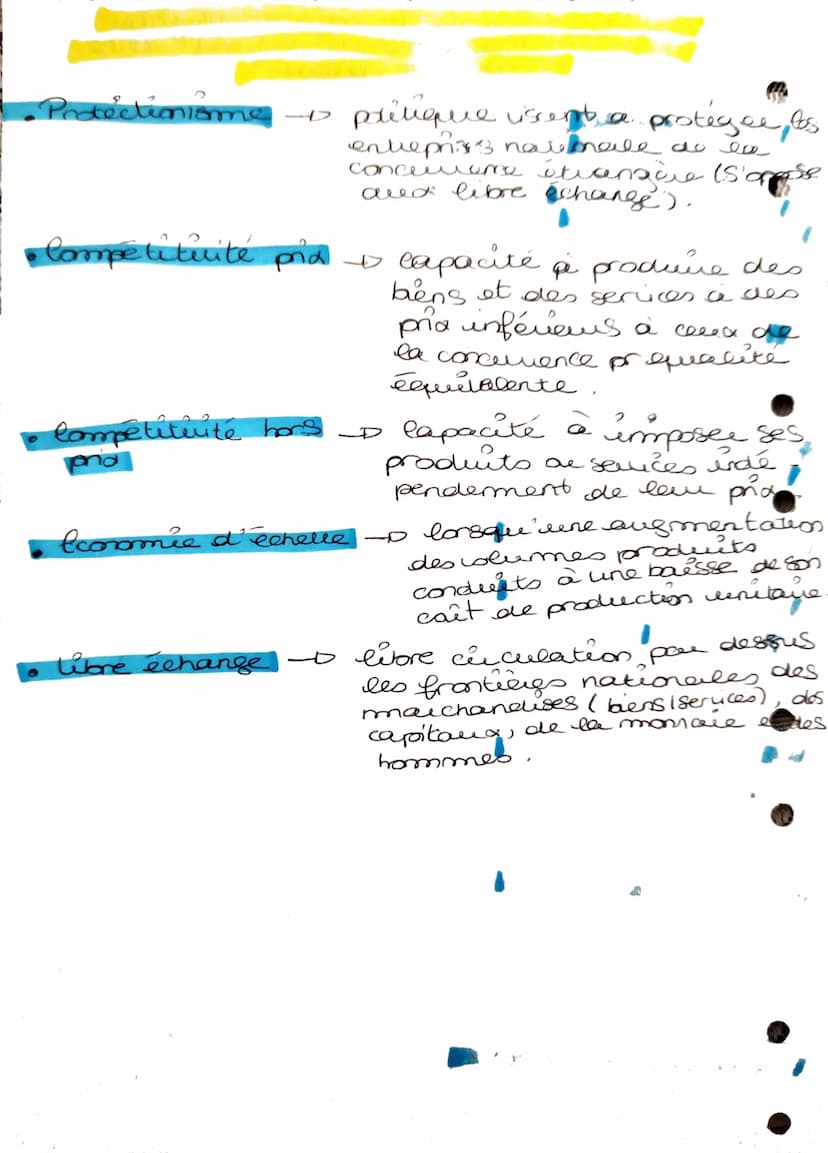 • Protéctionisme → politique visent a protéger les
entreprises nationale de la
concurrence étrangère (s'oppose
aux libre échange).
• Compétitivité prix → capacité à produire des
biens et des services à des
prix inférieurs à ceux de
la concurrence pr qualité
équivalente.
• Compétitivité hors
prix
→ Capacité à imposer ses
produits ou services indé-
pendemment de leur prix.
• Économie d'échelle → lorsqu'une augmentation
des volumes produits
conduits à une baisse de son
coût de production unitaire.
• Libre échange → libre circulation par dessus
les frontières nationales des
marchandises (biens/services), des
capitaux, de la monnaie et des
hommes.